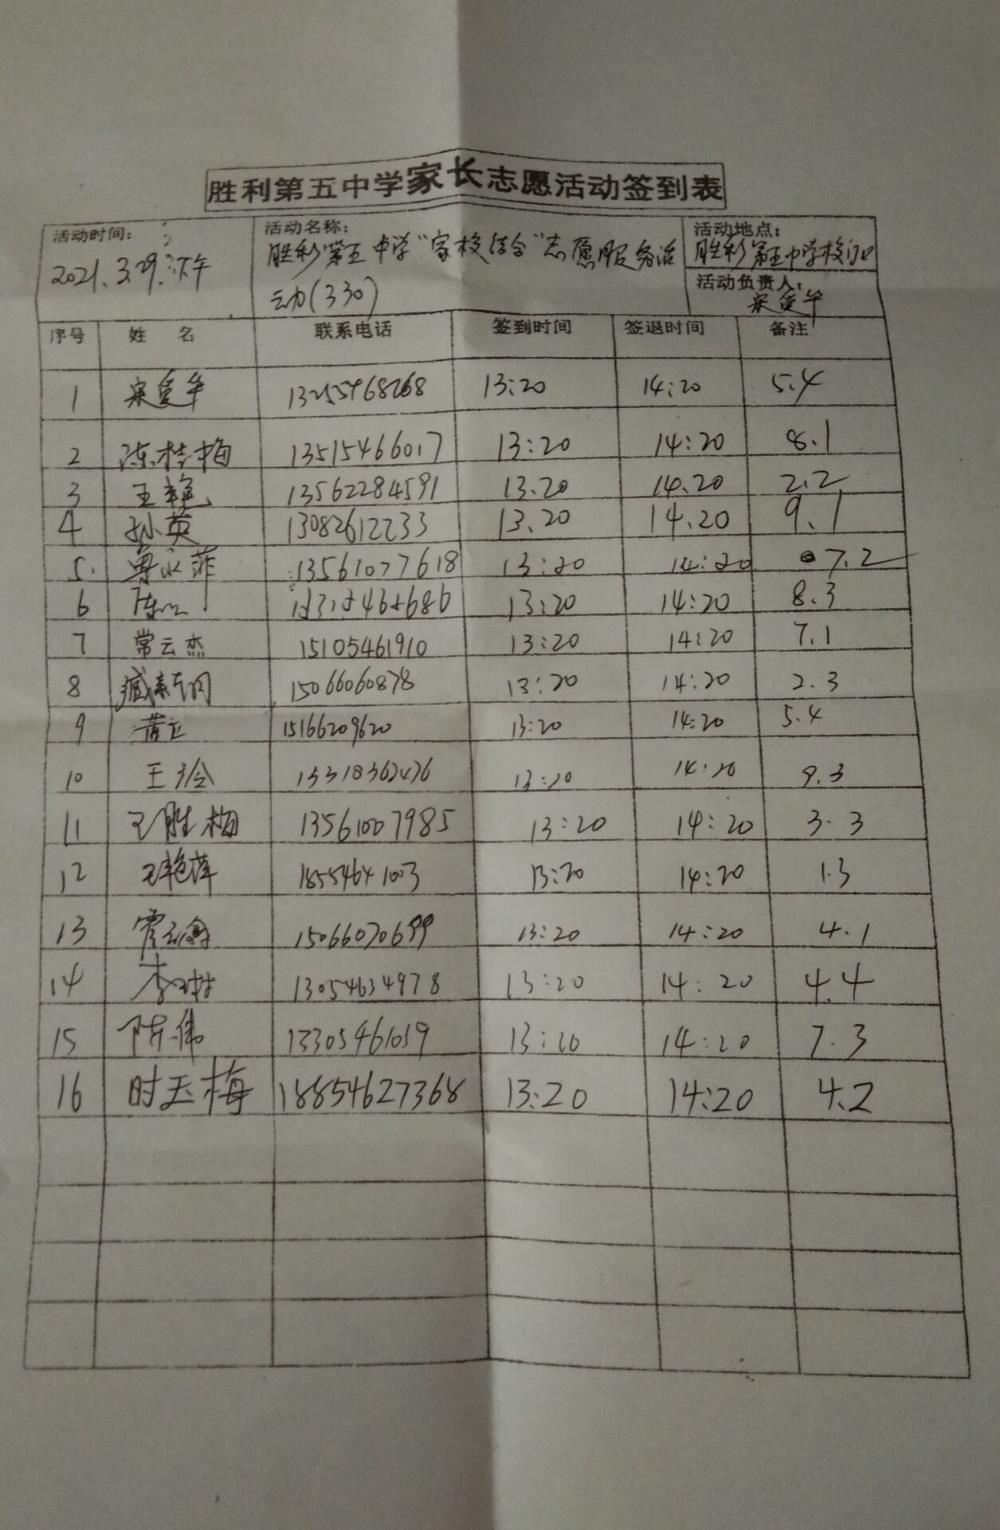 胜利第五中学家长志愿活动签到表
活动时间: 2021.3.29.下午
活动名称: 胜利第五中学"家校结合"志愿服务活动(330)
活动地点: 胜利第五中学校门口
活动负责人: 宋爱华
序号 姓名 联系电话 签到时间 签退时间 备注
1 宋爱华 13255468268 13:20 14:20 5.4
2 陈桂梅 13515466017 13:20 14:20 8.1
3 王艳 13562284591 13.20 14.20 2.2
4 孙英 13082612233 13.20 14.20 9.1
5. 13561077618 13:20 14:20 7.2
6 13:20 14:20 8.3
7 常云杰 15105461910 13:20 14:20 7.1
8 15066060878 13:20 14:20 2.3
9 15166209620 13:20 14:20 5.4
10 王玲 13:20 14:20 9.3
11 王胜梅 13561007985 13:20 14:20 3.3
12 王艳萍 18554641003 13:20 14:20 1.3
13 15066070699 13:20 14:20 4.1
14 李琳 13054634978 13:20 14:20 4.4
15 陈伟 13305461059 13:20 14:20 7.3
16 时玉梅 18854627368 13:20 14:20 4.2